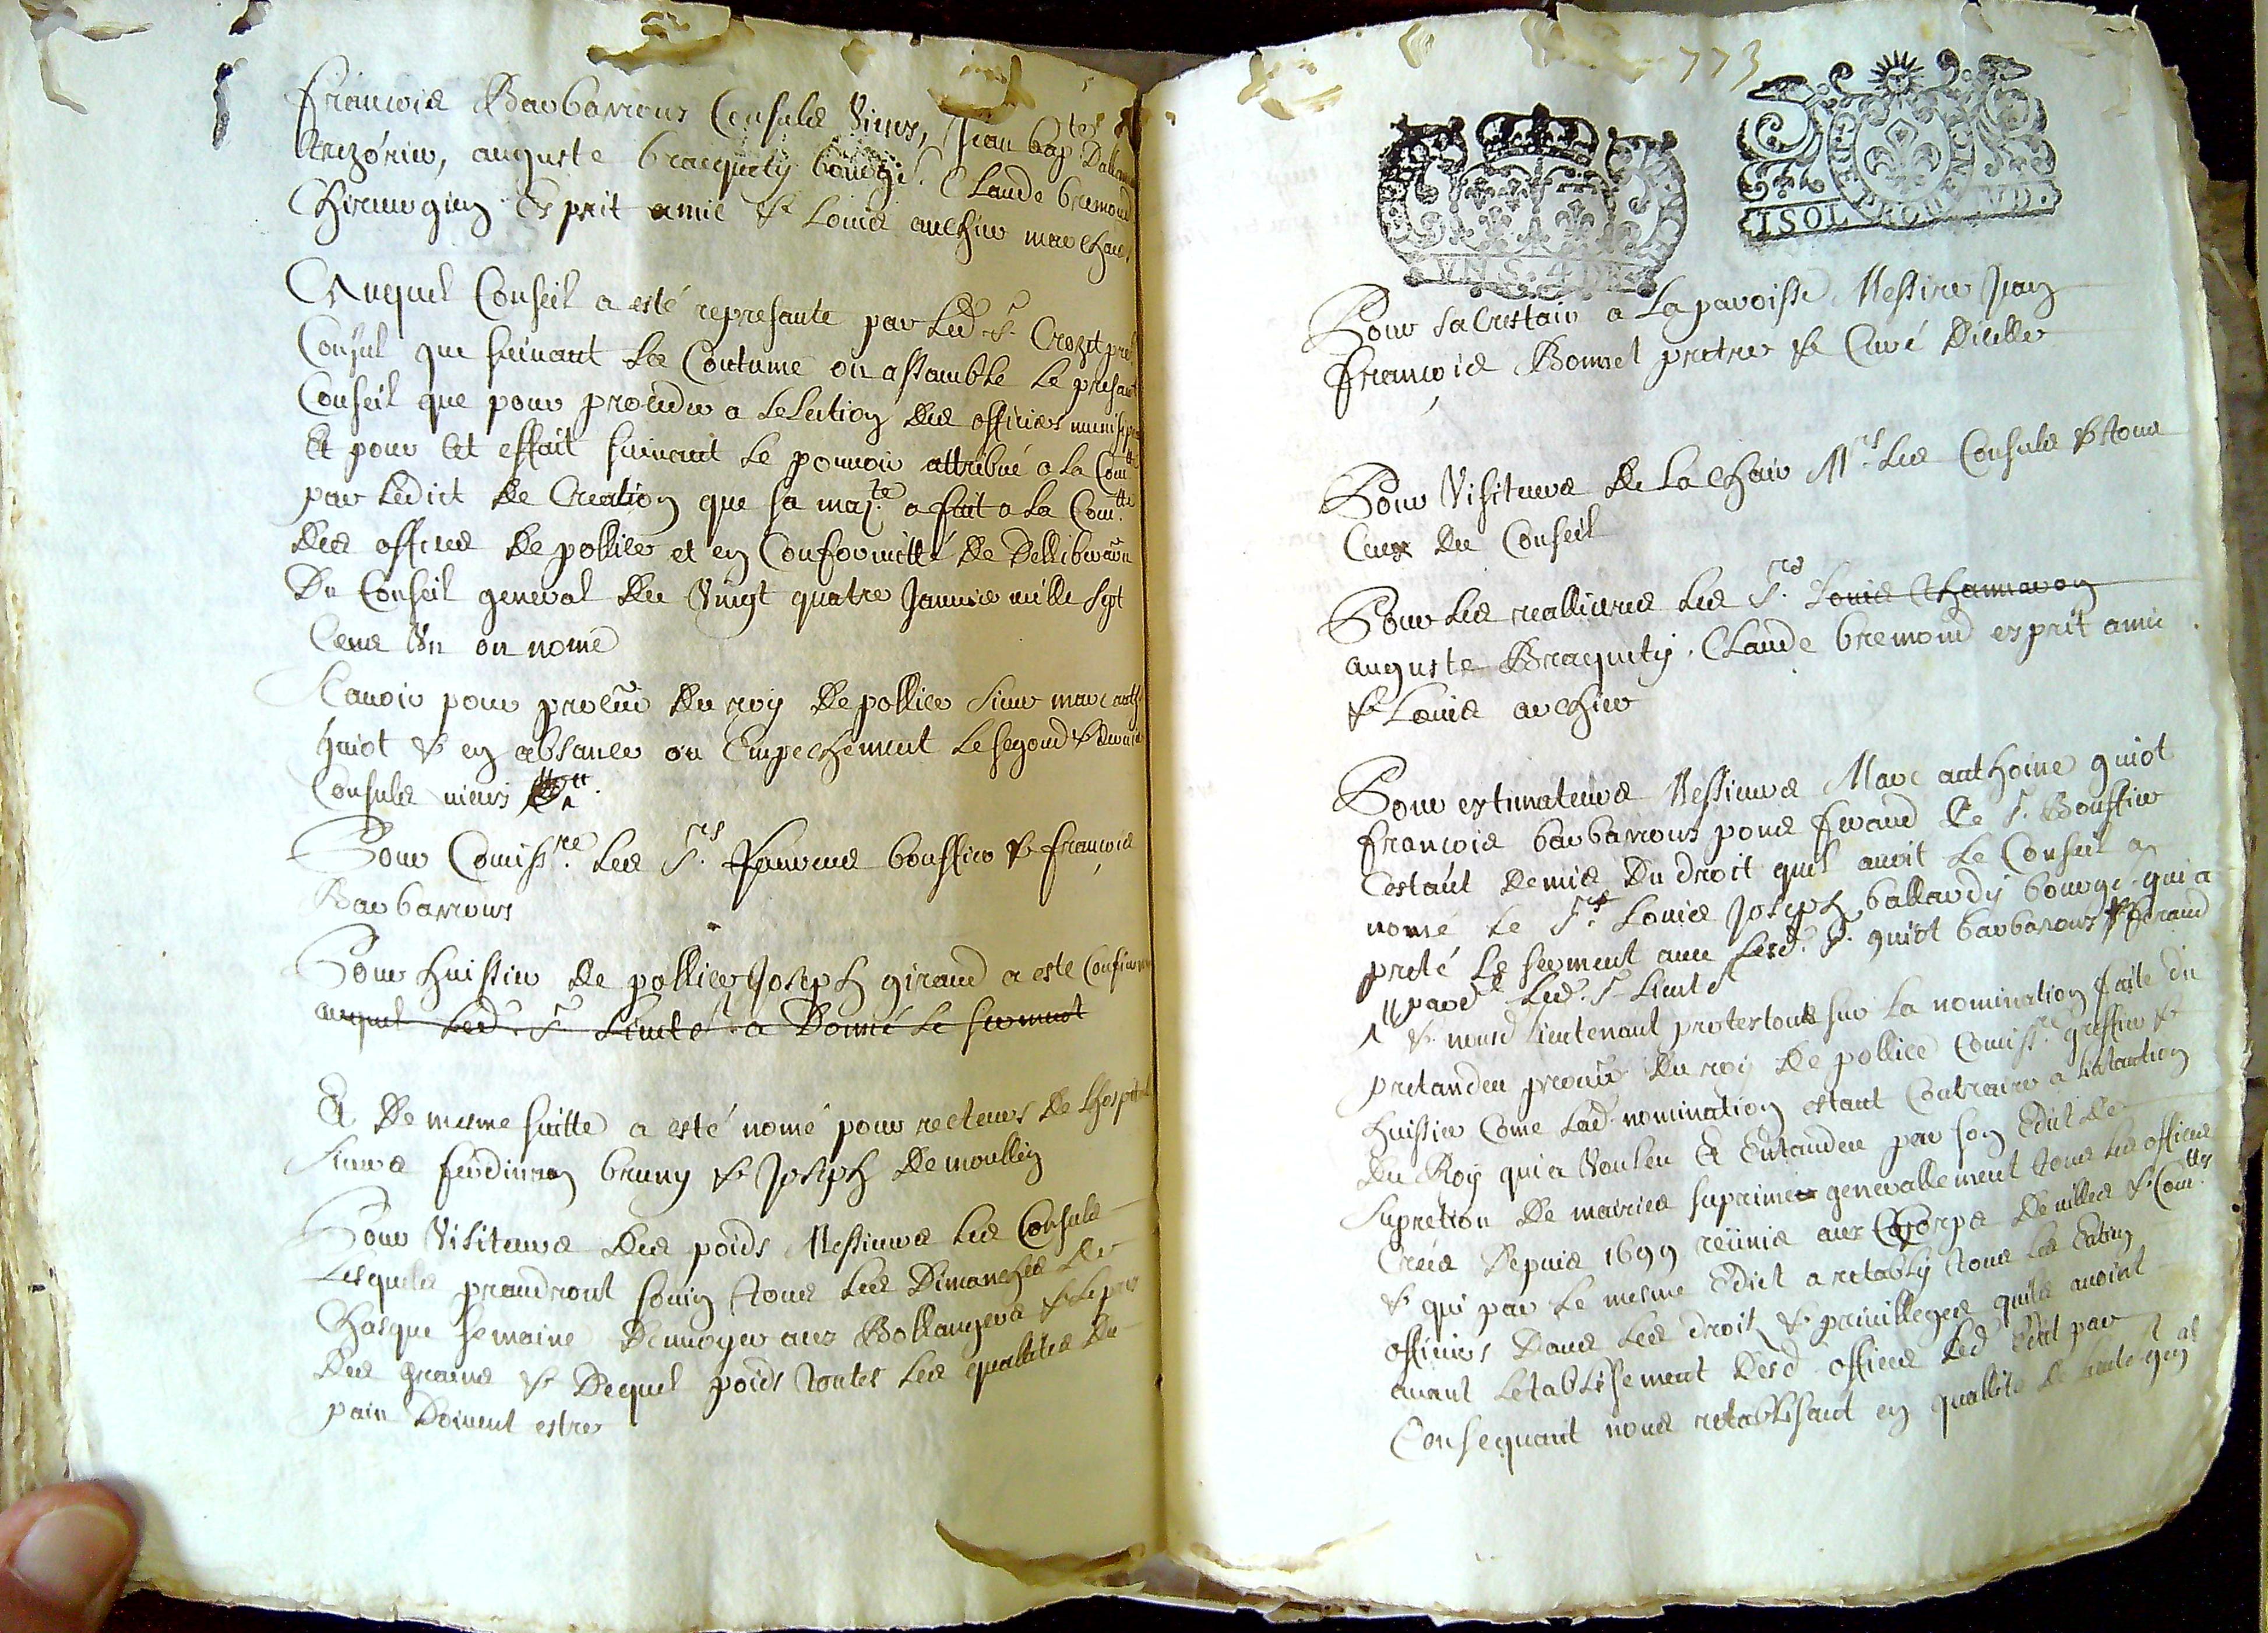 francois Barbarrous Consuls vieux, Jean bap.te
trezórier, auguste bracquety bourg.s Claude bremond
Chirurgien Esprit amic & Louis archier marchan
Auquel Conseil a esté represanté par led. s.r Crozet
Consul que suivant la Coutume on assamble le presant
Conseil que pour proceder a lelection des officiers
Et pour cet effait suivant le pouvoir attribué a la Com.tte
par ledict de Creation que sa maj.te a fait a la Com.tte
des offices de pollice et en Conformitté de
du Conseil general du Vingt quatre Janvier mille sept
Cens un on nomé
Scavoir pour procur du roy de pollice sieur marc
guiot & en absance ou Empechement le segond &
Consuls vieux
Pour Comiss.re les s.rs bouffier & francois
Barbarrous
Pour huissier de pollice Joseph giraud a esté
auquel led. s.r Lieute.t a Donné le serment
Et de mesme suitte a esté nomé pour recteurs de lhospital
sieurs bruny & Joseph demoullin
Pour Visiteurs des poids Messieurs les Consuls
lesquels prandront soin tous les Dimanches de
Chasque semaine Denvoyer aux Bollangers & le prix
des grains & Dequel poids toutes les qualités du
pain Doivent estre
773
VN S. 4 D.
GENERALITE DE PROVENCE
1 SOL
Pour sacristain a la paroisse Messire Jean
francois Bonnet pretre & Curé Dicelle
Pour Visiteurs de la chair M.rs les Consuls & tous
Ceux du Conseil
Pour les reallieres les s.rs Louis Channavon
auguste Bracquety. Claude bremond esprit amic
& Louis archier
Pour estimateurs Messieurs Marc anthoine guiot
francois barbarrous pons feraud & s.r Bouffier
Cestant demis du droit quil avoit le Conseil a
nomé le s.r Louis Joseph ballardy bourge. qui a
preté le serment avec lesd. s. guiot barbarous & feraud
led. s.r Lieute.t
& nousd Lieutenant protestons sur la nomination faite du
pretandeu procur du roy de pollice Comiss.re greffier &
huissier Come lad nomination estant Contraire a lintantion
du Roy qui a vouleu & Entandeu par son Edict de
supretion de mairies suprimer generallement tous les offices
Créés Depuis 1699 reünis aux Corps de villes & Com.ttes
& qui par le mesme Edict a retably tous les
officiers Dans les droits & privilleges quils avoint
avant letablissement desd offices led Edit par
Consequant nous retablisant en quallité de